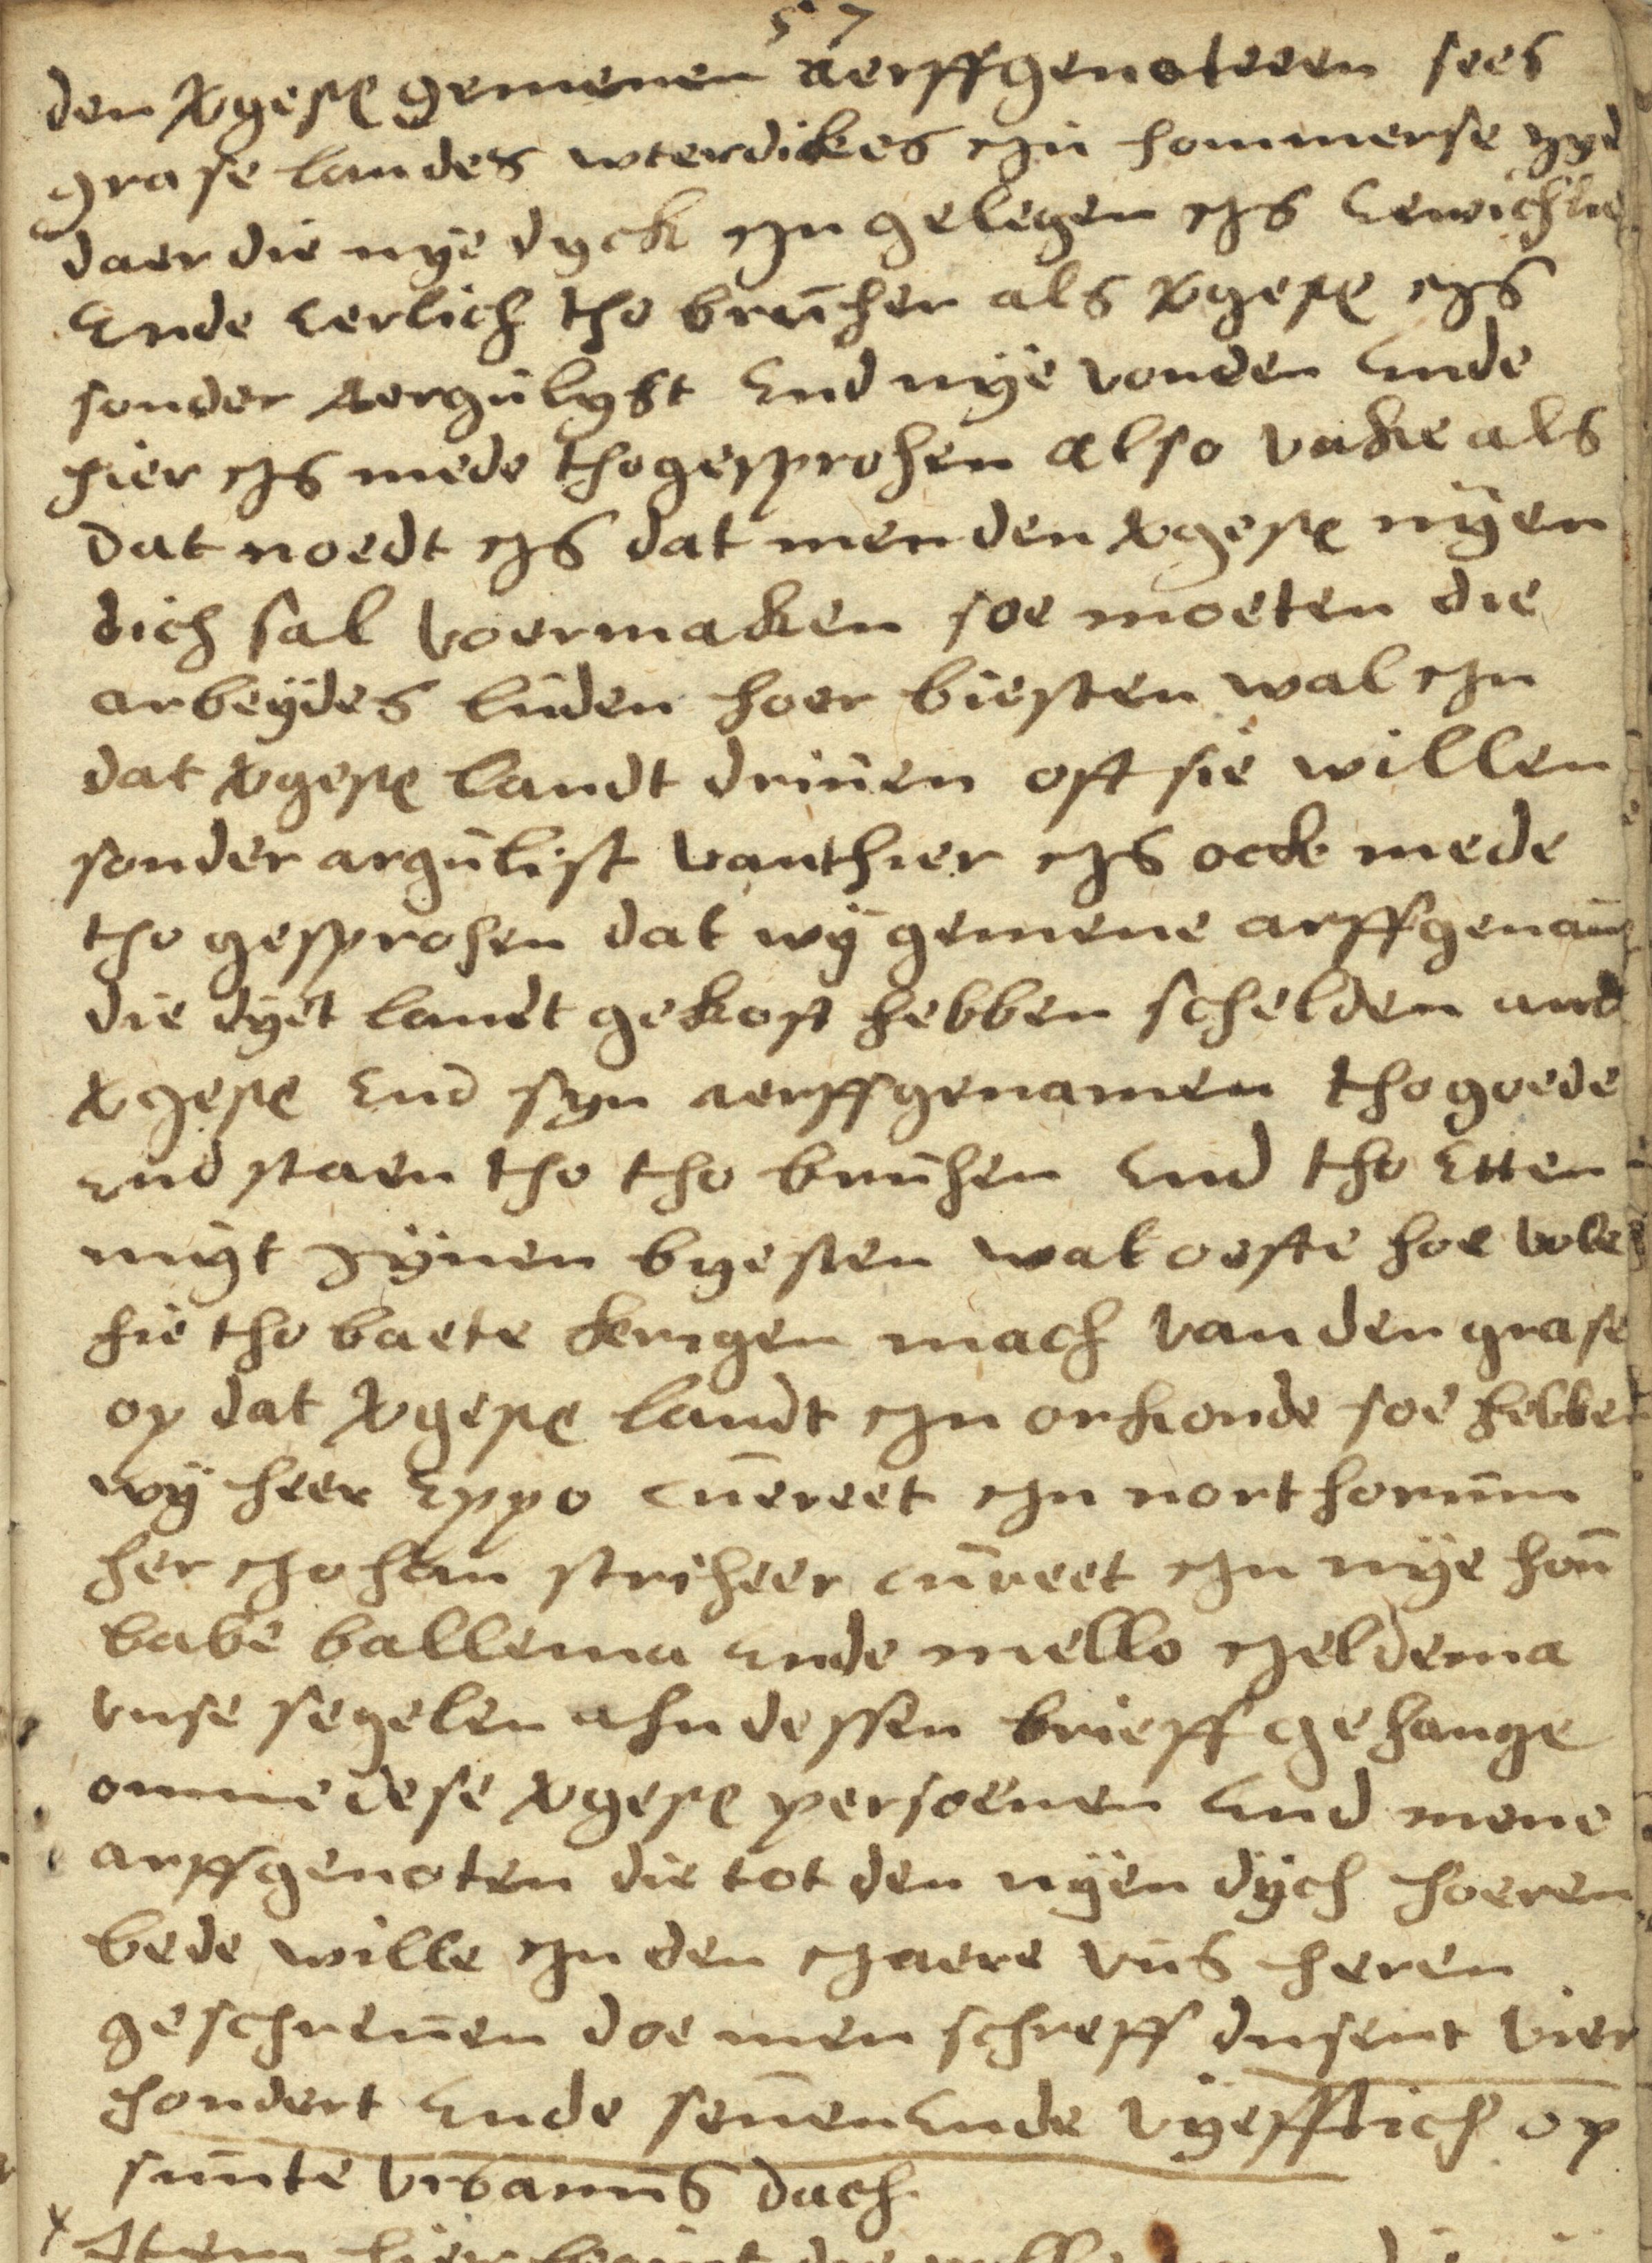 57
den vgesc gemenen aerffgenoteen sees
grase landes wterdikes in hommerse zyd
daer die nye dyck in gelegen is eewichlic
ende eerlich tho brucken als vgesc is
sonder aergulyst end nye vonden ende
hier is mede thogesproken also vake als
dat noedt is dat men den vgesc nyen
dich sal voermaken soe moeten die
arbeydes luden hoer biesten wal in
dat vgesc landt driuen oft sie willen
sonder argulist vant hier is ock mede
tho gesproken dat wy gemene arffgenam
die dyet landt gekoft hebben schelden
vgesc end syn aerffgenamen tho goede
end staen tho tho bruken end tho etten
myt zynen byesten wat oefte hoe vole
hie tho baete krigen mach van den grase
op dat vgesc landt in orkonde soe hebben
wy heer eppo cuereet in northornum
her johan striheer cureet in nye
babe ballema ende mello jeldema
vnse segelen ahn dessen brieff gehange
omme dese vgesc persoenen end mene
arffgenoten die tot den nyen dych hoeren
bede wille in den jaere vns heren
geschreuen doe men schreff dusent vier
hondert ende seuen ende vyefftich op
sunte vrbanus dach
Item hier